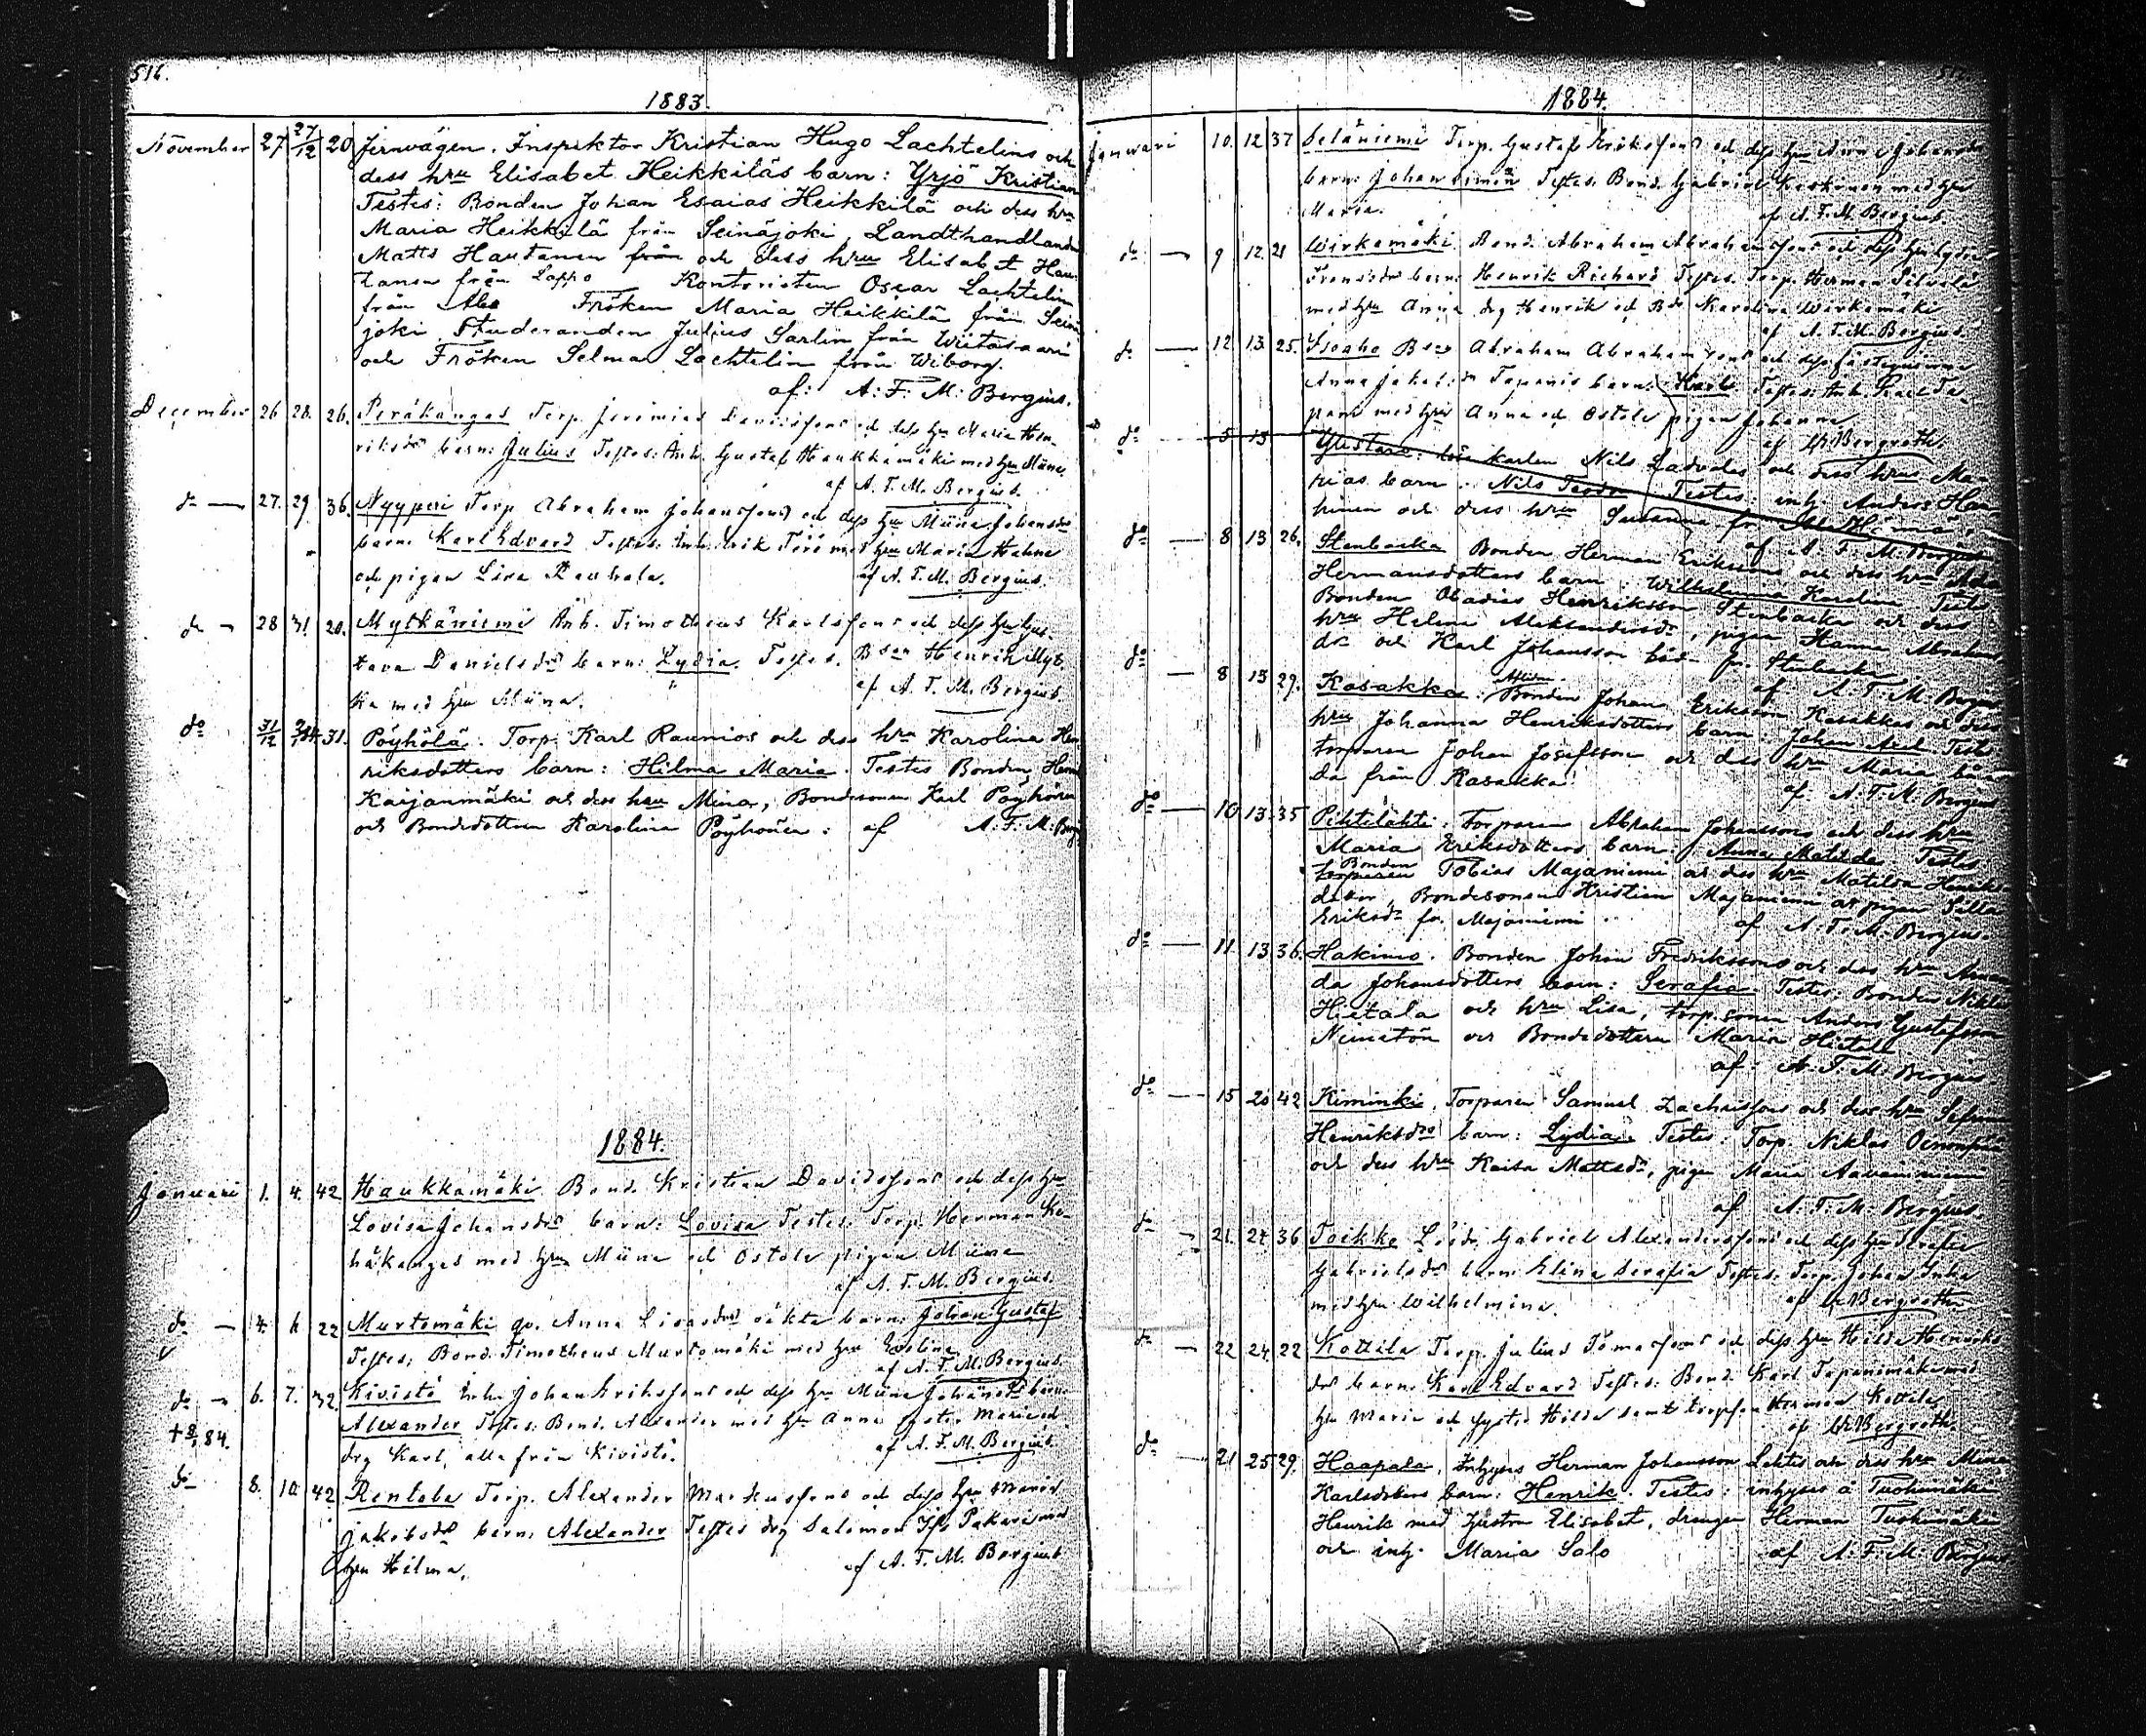 516.
1883.
November 27 27/12 20 Jernvägen. Inspektor Kristian Hugo Lachtelins och
dess hru Elisabet Heikkiläs barn: Yrjö Kristian
Testes: Bonden Johan Esaias Heikkilä och dess hru
Maria Heikkilä från Seinäjoki, Landthandlanden
Matts Hautanen från och dess hru Elisabet Hau-
tanen från Lappo Kontoristen Oscar Lachtelin
från Åbo Fröken Maria Heikkilä från Seinä
joki Studeranden Julius Sarlin från Wiitasaari
och Fröken Selma Lachtelin från Wiborg.
af: A: F. M: Bergius.
December 26 28. 26. Peräkangas Torp. Jeremias Davidssons och dess hu Maria Hen-
riksdrs barn: Julius Testes: Inh. Gustaf Haukkamäki med hu Miina
af A. F. M. Bergius.
do 27. 29 36. Nyyperi Torp Abraham Johanssons och dess hu Miina Johansdrs
barn: Karl Edvard Testes: Inh. Erik med hu Maria
och pigan Lisa Rauhala. af A. F. M. Bergius.
do 28 31 20. Mytkäniemi Inh. Timotheus Karlssons och dess hu Gus-
tava Danielsdrs barn: Lydia. Testes. Bson Henrik Myt-
kä med hu Miina. af A. F. M. Bergius.
do 31/12 31. Pöyhölä. Torp. Karl Raunios och dess hru Karolina Hen
riksdotters barn: Hilma Maria. Testes Bonden Henrik
Kaijanmäki och dess hru Mina, Bondesonen Karl Pöyhönen
och Bondedottren Karolina Pöyhönen: af A: F. M: Bergius
1884.
Januari 1. 4. 42 Haukkamäki Bond. Kristian Davidssons och dess hu
Lovisa Johansdrs barn: Lovisa Testes: Torp. Herman
med hu Miina och Ostola pigan Miina
af A. F. M. Bergius.
do 4. 6 22 Murtomäki qv. Anna Lisas oäkta barn: Johan Gustaf
Testes: Bond. Timotheus Murtomäki med hu Evelina
af A. F. M. Bergius.
do 6. 7. 32 Kivistö Inh. Johan Erikssons och dess hu Miina Johansdrs barn:
Alexander Testes: Bond. Alexander med hu Anna syster Maria och
84. drg Karl, alla från Kivistö. af A. F. M. Bergius
do 8. 10. 42 Rentola Torp. Alexander Markussons och dess hu Maria
Jakobsdrs barn: Alexander Testes drg Salomon Pakari med
hu Hilma. af A. F. M. Bergius
1884.
Januari 10. 12 37 Torp. Gustaf Erikssons och dess hu Anna Johansdrs
barn: Johan Simon Testes: Bond. Gabriel Keskinen med hu
Maria. af A. F. M. Bergius.
do 9 12. 21 Wirkamäki Bond. Abraham Abrahamssons och dess hu Lydia
barn: Henrik Richard Testes. Torp. Herman
med hu Anna, drg Henrik och Bdr Karolina Wirkamäki
af A. F. M. Bergius.
do 12 13 25. Isoaho Bson Abraham Abrahamssons och dess fästeqvinna
Anna Tapanis barn: Karl Testes: Inh. Ta-
pani med hu Anna och Ostola pigan Johanna
af Bergroth.
do 5 13 Ylistaro: karlen Nils Ladvalas och dess hrus Ma-
rias barn: Nils Teodor Testes: inh. Anders Han-
hinen och dess hru Susanna fr.
af A. F. M. Bergius
do 8 13 26. Stenbacka Bonden Herman Erikssons och dess hru
Hermansdotters barn: Wilhelmina Karolina Testes
Bonden Obadias Henriksson Stenbacka och dess
hru Helena Aleksandersdr, pigan Hanna Abrahams-
dr och Karl Johansson båd. fr. Stenbacka
af A. F. M. Bergius
do 8 13 29. Kasakka: Bonden Johan Eriksson Kasakkas och dess
hru Johanna Henriksdotters barn: Johan Testes
torparen Johan Josefsson och dess hru Maria båa
da från Kasakka. af A. F. M. Bergius
do 10 13 35 Pihtilähti: Torparen Abraham Johanssons och dess hru
Maria Eriksdotters barn: Anna Matilda Testes
Bonden
torparen Tobias Majaniemi och dess hru Matilda Henriks
dotter, Bondesonen Kristian Majaniemi och pigan
Eriksdr fr. Majaniemi af A. F. M. Bergius.
do 11. 13 36. Hakimo. Bonden Johan Fredrikssons och dess hru Aman
da Johansdotters barn: Serafia. Testes: Bonden
Hietala och hru Lisa, torp. sonen Anders Gustafsson
och Bondedottren Maria Hietala
af: A. F. M. Bergius
do 15 20 42 Kiminki. Torparen Samuel Zachrissons och dess hru
Henriksdrs barn: Lydia. Testes: Torp. Niklas
och dess hru Kaisa Mattsdr, pigan Maria
af A. F. M. Bergius.
do 21. 24 36 Toikka Gabriel Alexanderssons och dess hu Serafia
Gabrielsdrs barn: Elina Serafia Testes: Torp. Johan
med hu Wilhelmina. af Bergroth
do 22 24. 22 Kottila Torp. Julius Tomassons och dess hu Hilda Henriks
drs barn: Karl Edvard Testes: Bond. Karl Tapanimäki med
hu Maria och syster Hilda samt torpson Herman Kottila
af Bergroth.
do 21 25 29. Haapala, Inhyses Herman Johansson Lehtis och dess hru Mina
Karlsdotters barn: Henrik. Testes: inhyses å Tuohimäki
Henrik med hustru Elisabet, drengen Herman Tuohimäki
och inh. Maria Salo af A. F. M. Bergius